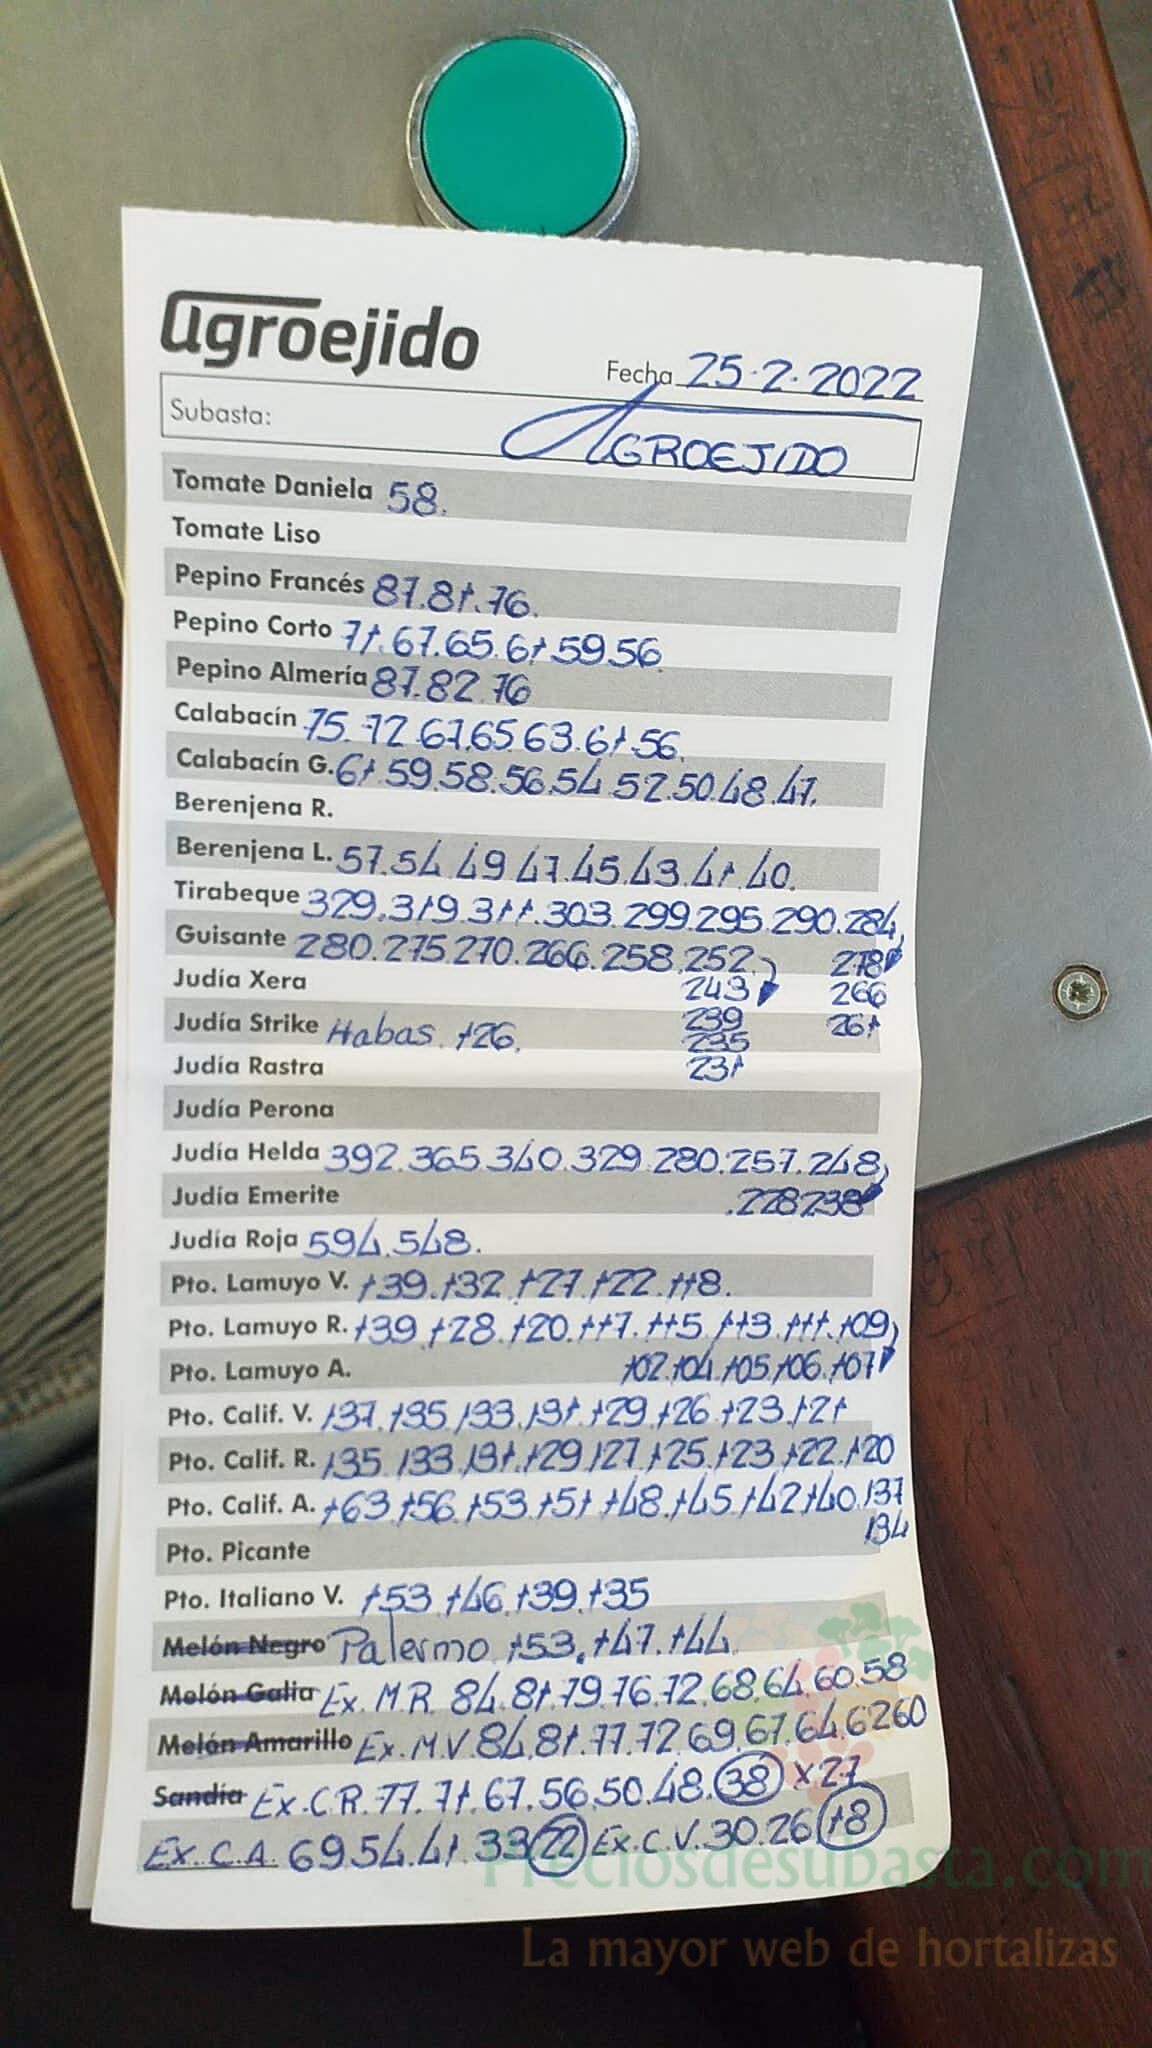 agroejido
Fecha 25-2-2022
Subasta: AGROEJIDO
Tomate Daniela 58.
Tomate Liso
Pepino Francés 87.81.76.
Pepino Corto 71.67.65.61.59.56
Pepino Almería 87.82.76
Calabacín 75.72.67.65.63.61.56.
Calabacín G. 61.59.58.56.54.52.50.48.47.
Berenjena R.
Berenjena L. 57.54.49.47.45.43.41.40.
Tirabeque 329.319.311.303.299.295.290.284,
Guisante 280.275.270.266.258.252. 278
243 266
Judía Xera
239 261
Judía Strike Habas 126.
235
Judía Rastra 231
Judía Perona
Judía Helda 392.365.340.329.280.257.248,
Judía Emerite .228 238
Judía Roja 594.548.
Pto. Lamuyo V. 139.132.127.122.118.
Pto. Lamuyo R. 139.128.120.117.115.113.111.109,
Pto. Lamuyo A. 102.104.105.106.107
Pto. Calif. V. 137.135.133.131.129.126.123.121
Pto. Calif. R. 135.133.131.129.127.125.123.122.120
Pto. Calif. A. 163.156.153.151.148.145.142.140.137
134
Pto. Picante
Pto. Italiano V. 153.146.139.135
Melón Negro Palermo 153.147.144.
Melón Galia Ex. M.R. 84.81.79.76.72.68.64.60.58
Melón Amarillo Ex. M.V 84.81.77.72.69.67.64.62 60
Sandía Ex. C.R. 77.71.67.56.50.48.38 x27
Ex. C.A. 69.54.41.33 22 Ex. C.V. 30.26 18
Preciosdesubasta.com
La mayor web de hortalizas